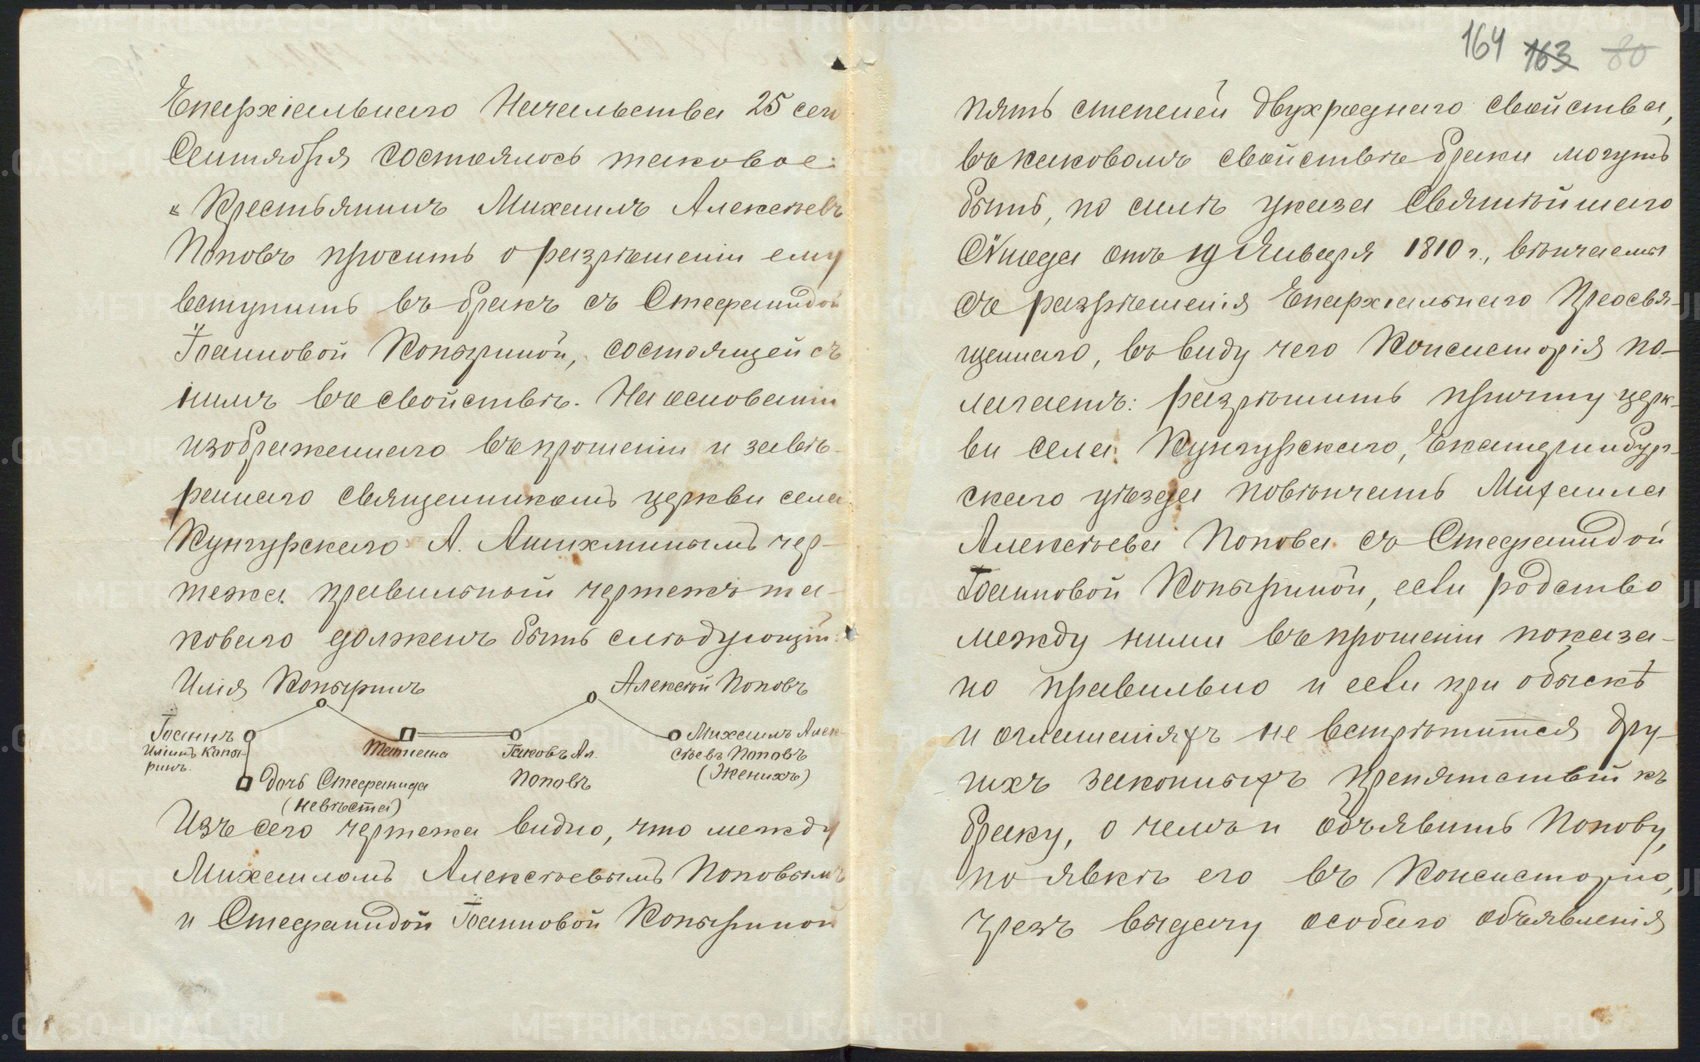 Епархіальнаго Начальства 25 сего
Сентября состоялось таковое:
"Крестьянинъ Михаилъ Алексѣевъ
Поповъ проситъ о разрѣшеніи ему
вступить въ бракъ съ Стефанидой
Іоанновой Копыриной, состоящей съ
нимъ въ свойствѣ. На основаніи
изображеннаго въ прошеніи и завѣ-
реннаго священникомъ церкви села
Кунгурскаго А. Ашихминымъ чер-
тежа правильный чертежъ та-
коваго долженъ быть слѣдующій:
Илія Копыринъ
Алексѣй Поповъ
Іоаннъ
Иліинъ Копы-
ринъ.
Татіана
Іаковъ Ал.
Поповъ
Михаилъ Алек-
сѣевъ Поповъ
(Женихъ)
Дочь Стефанида
(невѣста)
Изъ сего чертежа видно, что между
Михаиломъ Алексѣевымъ Поповымъ
и Стефанидой Іоанновой Копыриной
164 163 80
пять степеней двухроднаго свойства,
въ каковомъ свойствѣ браки могутъ
быть, по силѣ указа Святѣйшаго
Сѵнода отъ 19 Января 1810 г., вѣнчаемы
съ разрѣшенія Епархіальнаго Преосвя-
щеннаго, въ виду чего Консисторія по-
лагаетъ: разрѣшить причту церк-
ви села Кунгурскаго, Екатеринбур-
скаго уѣзда повѣнчать Михаила
Алексѣева Попова съ Стефанидой
Іоанновой Копыриной, если родство
между ними въ прошеніи показа-
но правильно и если при обыскѣ
и оглашеніяхъ не встрѣтится дру-
гихъ законныхъ препятствій къ
браку, о чемъ и объявить Попову,
по явкѣ его въ Консисторію,
чрезъ выдачу особаго объявленія
METRIKI.GASO-URAL.RU